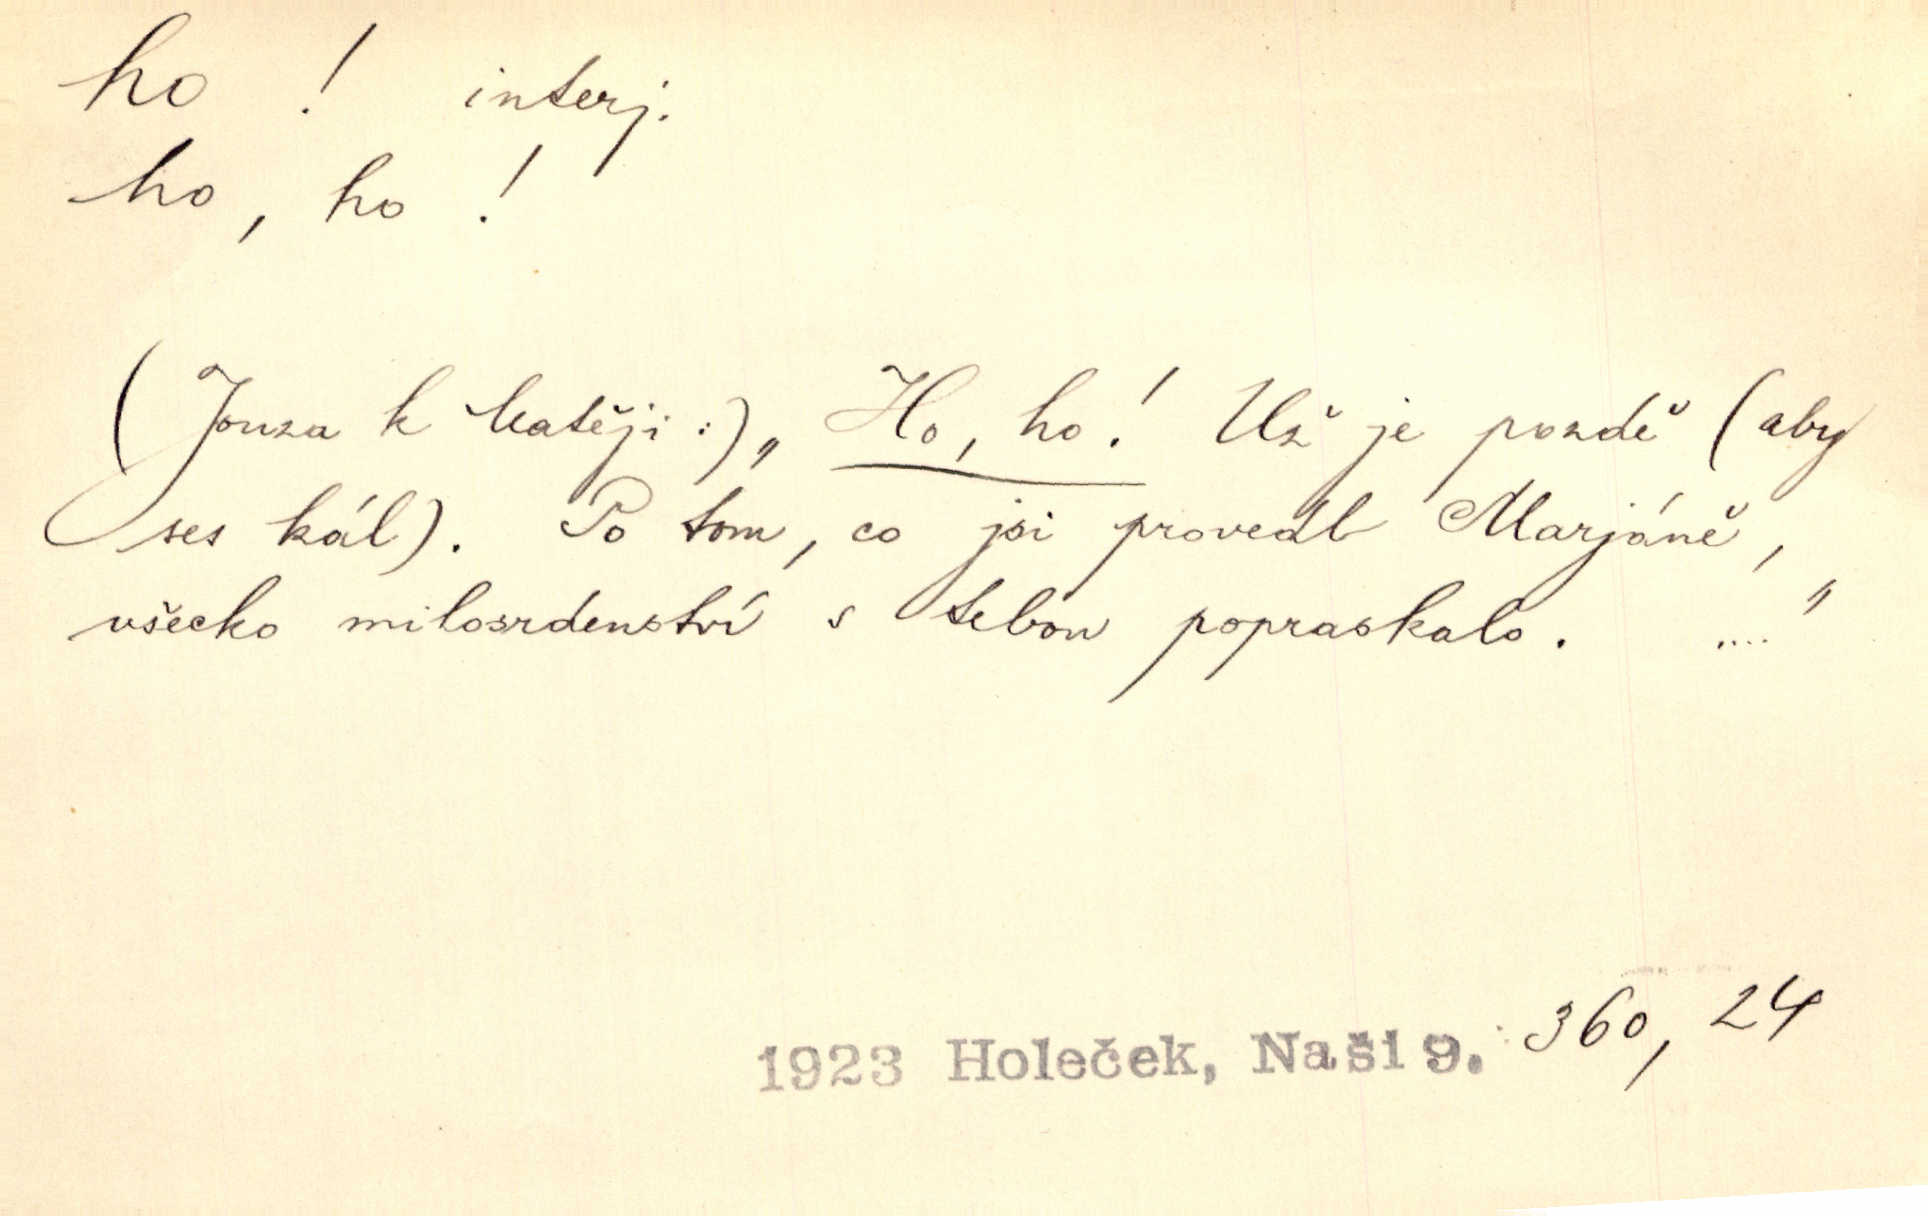 ho ! interj.
ho, ho !
(Jouza k Matěji:) „Ho, ho! Už je pozdě (aby
ses kál). Po tom, co jsi provedl Marjáně,
všecko milosrdenství s tebou popraskalo. ...."
1923 Holeček, Naši 9. 360, 24